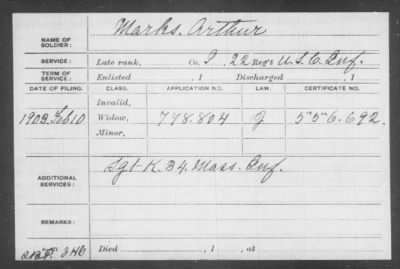 NAME OF SOLDIER: Marks, Arthur
SERVICE: Late rank, Co. I, 22 Regt U.S.C. Inf.
TERM OF SERVICE: Enlisted , 1 Discharged , 1
DATE OF FILING. CLASS. APPLICATION NO. LAW. CERTIFICATE NO.
Invalid,
1903 Feb 10 Widow, 778.804 G 556.692.
Minor,
ADDITIONAL SERVICES: Sgt K. 34. Mass. Inf.
REMARKS:
Died , 1 , at